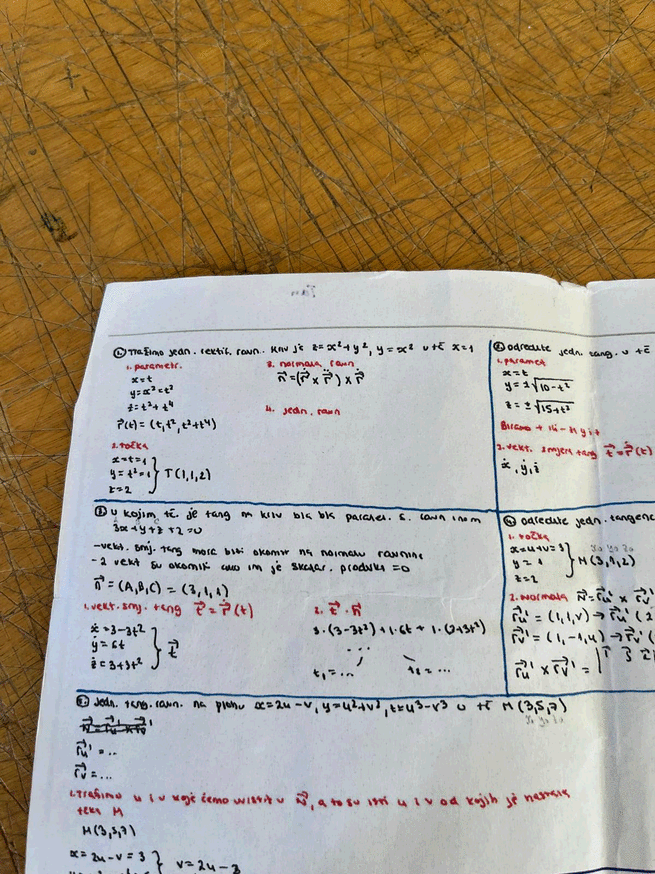 ① Tražimo jedn. rektif. ravn. kriv je z=x²+y², y=x² u tč x=1
1. parametr.
x=t
y=x²=t²
z=t²+t⁴
r⃗(t)=(t,t²,t²+t⁴)
2. točka
x=t=1
y=t²=1
z=2
T(1,1,2)
3. normala ravn.
4. jedn. ravn
② odredite jedn. tang. u tč
1. paramet
x=t
y=±√10-t²
z=±√15+t²
2. vekt. smjera tang t⃗=ṙ⃗(t)
ẋ, ẏ, ż
③ U kojim tč. je tang na kriv bla bla paralel. s. ravn inom
3x+y+z+2=0
-vekt. smj. tang mora biti okomit na normalu ravnine
-2 vekt su okomit ako im je skalar. produkt =0
n⃗=(A,B,C)=(3,1,1)
1. vekt. smj. tang t⃗=ṙ⃗(t)
ẋ=3-3t²
ẏ=6t
ż=3+3t²
t⃗
2. t⃗·n⃗
3·(3-3t²)+1·6t+1·(3+3t²)
...
t₁=... t₂=...
④ odredite jedn. tangenc
1. točka
x=u+v=3
y=1
z=2
x₀ y₀ z₀
M(3,1,2)
2. normala N⃗=r⃗u'×r⃗v'
r⃗u'=(1,1,v)→r⃗u'(2
r⃗v'=(1,-1,u)→r⃗v'(
r⃗u'×r⃗v'=
⑤ jedn. tang. ravn. na plohu x=2u-v, y=u²+v², z=u³-v³ u tč M(3,5,7)
x₀ y₀ z₀
r⃗u'=...
r⃗v=...
1. Tražimo u i v koje ćemo uvrstit u N⃗, a to su isti u i v od kojih je nastala
točka M
M(3,5,7)
x=2u-v=3
v=2u-3